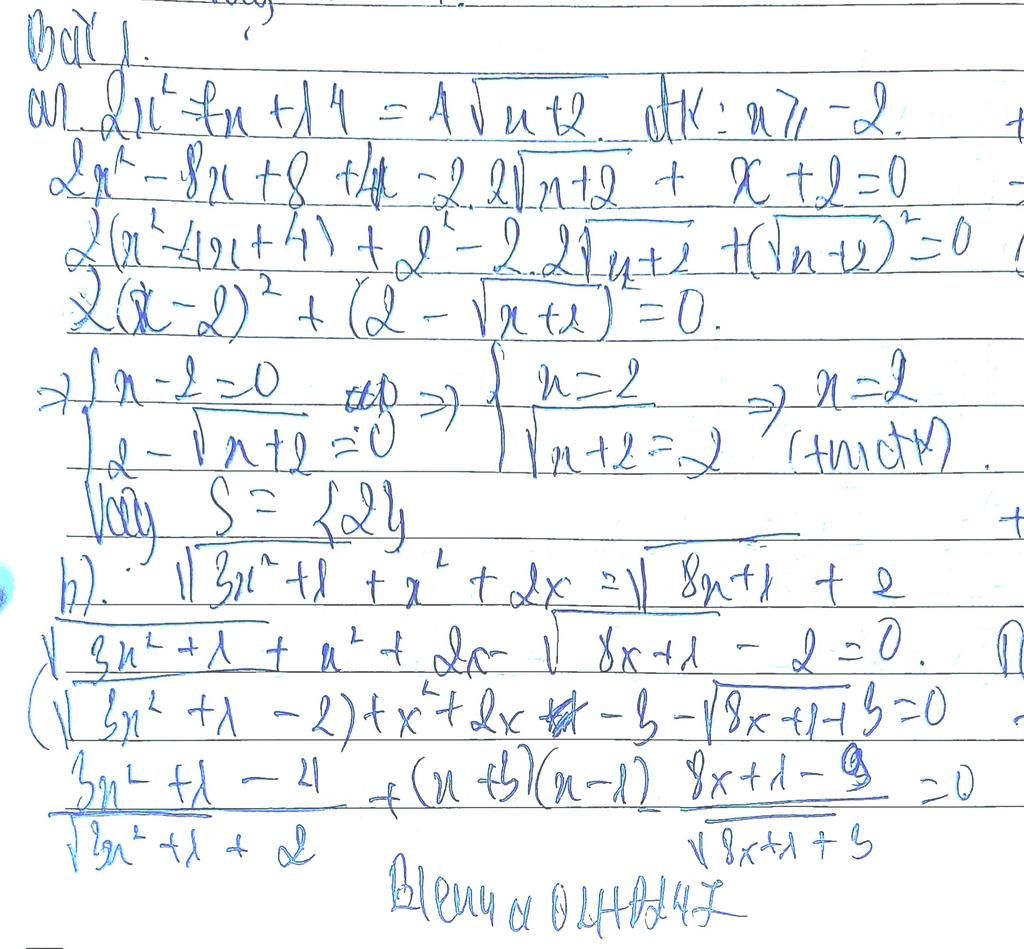 Bài 1.
a). 2x² - 7x + 14 = 4√(x+2). đk: x ≥ -2.
2x² - 8x + 8 + 4 - 2.2√(x+2) + x + 2 = 0
2(x² - 4x + 4) + 2² - 2.2√(x+2) + (√(x+2))² = 0
2(x - 2)² + (2 - √(x+2))² = 0.
=> { x - 2 = 0 ; 2 - √(x+2) = 0 => { x = 2 ; √(x+2) = 2 => x = 2 (tmđk).
Vậy S = {2}
b). √(3x² + 1) + x² + 2x = √(8x+1) + 2
√(3x² + 1) + x² + 2x - √(8x+1) - 2 = 0.
(√(3x² + 1) - 2) + x² + 2x - 3 - √(8x+1) + 3 = 0
(3x² + 1 - 4)/(√(3x² + 1) + 2) + (x + 3)(x - 1) (8x + 1 - 9)/(√(8x+1) + 3) = 0